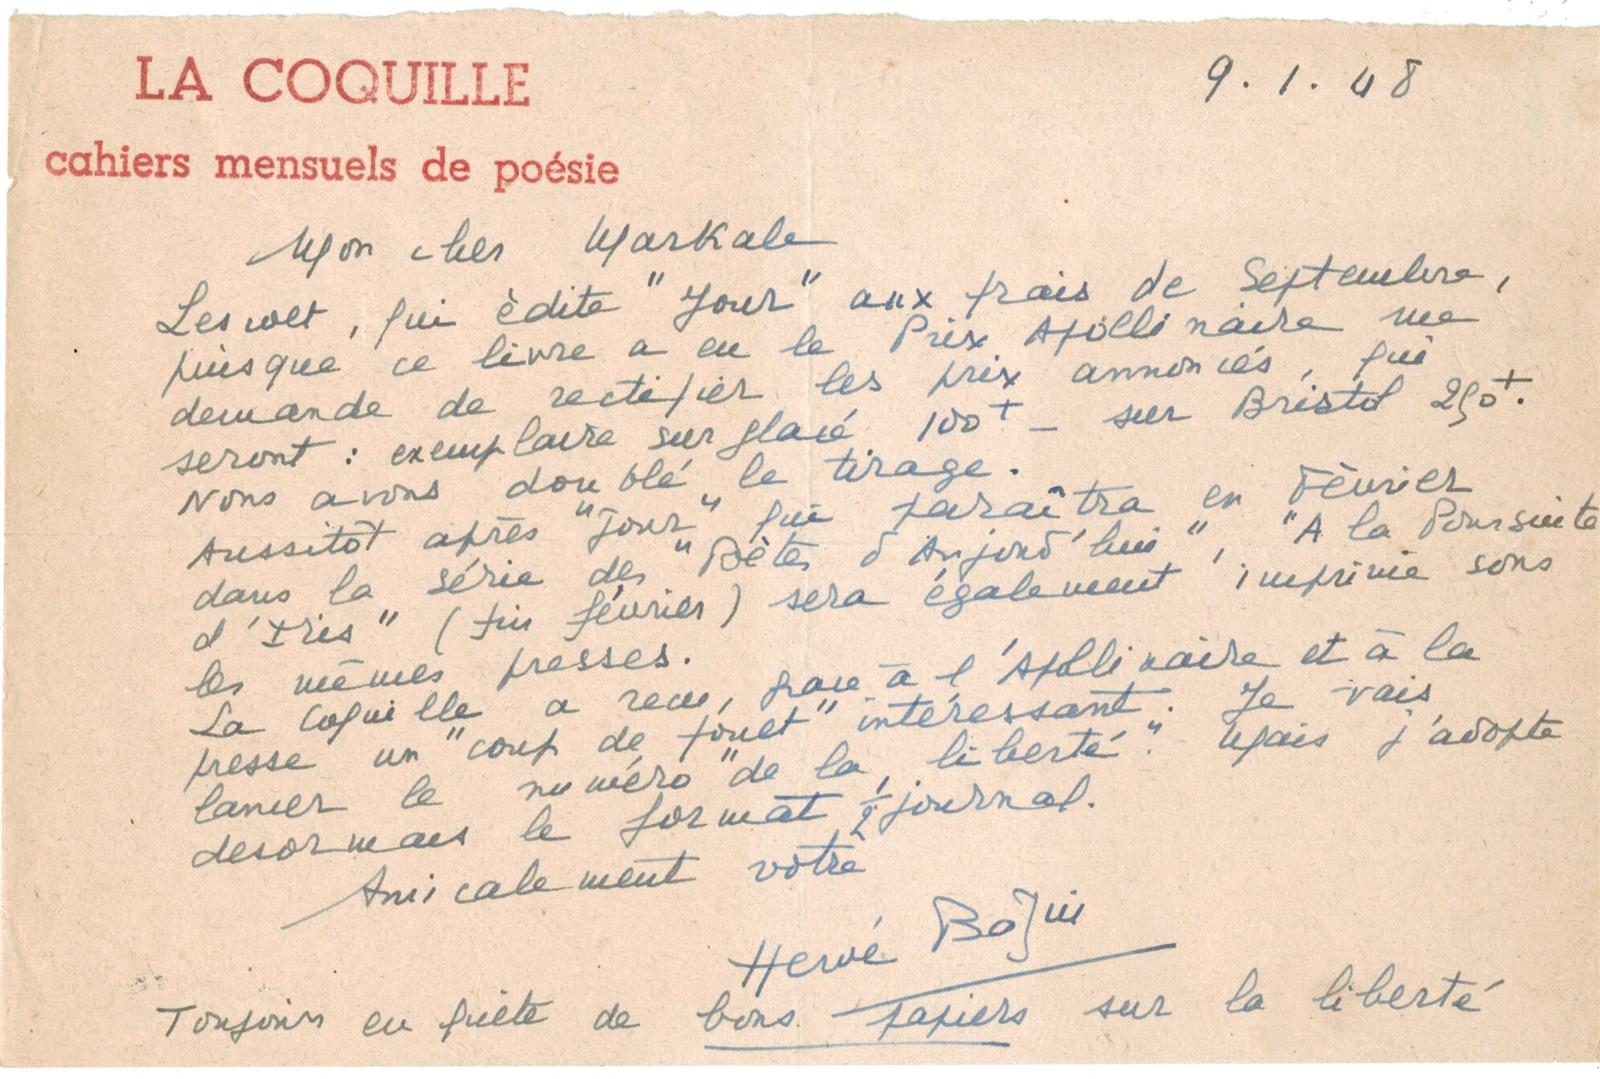 LA COQUILLE
cahiers mensuels de poésie
9.1.48
Mon cher Markale
Lescoet, qui édite "Jour" aux frais de Septembre,
puisque ce livre a eu le Prix Apollinaire me
demande de rectifier les prix annoncés, qui
seront : exemplaire sur glacé 100f – sur Bristol 250f.
Nous avons doublé le tirage.
Aussitôt après "Jour" qui paraîtra en Février
dans la série des "Bêtes d'Aujourd'hui", "A la Poursuite
d'Iris" (fin février) sera également imprimé sous
les mêmes presses.
La Coquille a reçu, grace à l'Apollinaire et à la
presse un "coup de fouet" intéressant. Je vais
lancer le numéro "de la liberté". Mais j'adopte
desormais le format 1/2 journal.
Amicalement votre
Hervé Bazin
Toujours en quête de bons papiers sur la liberté